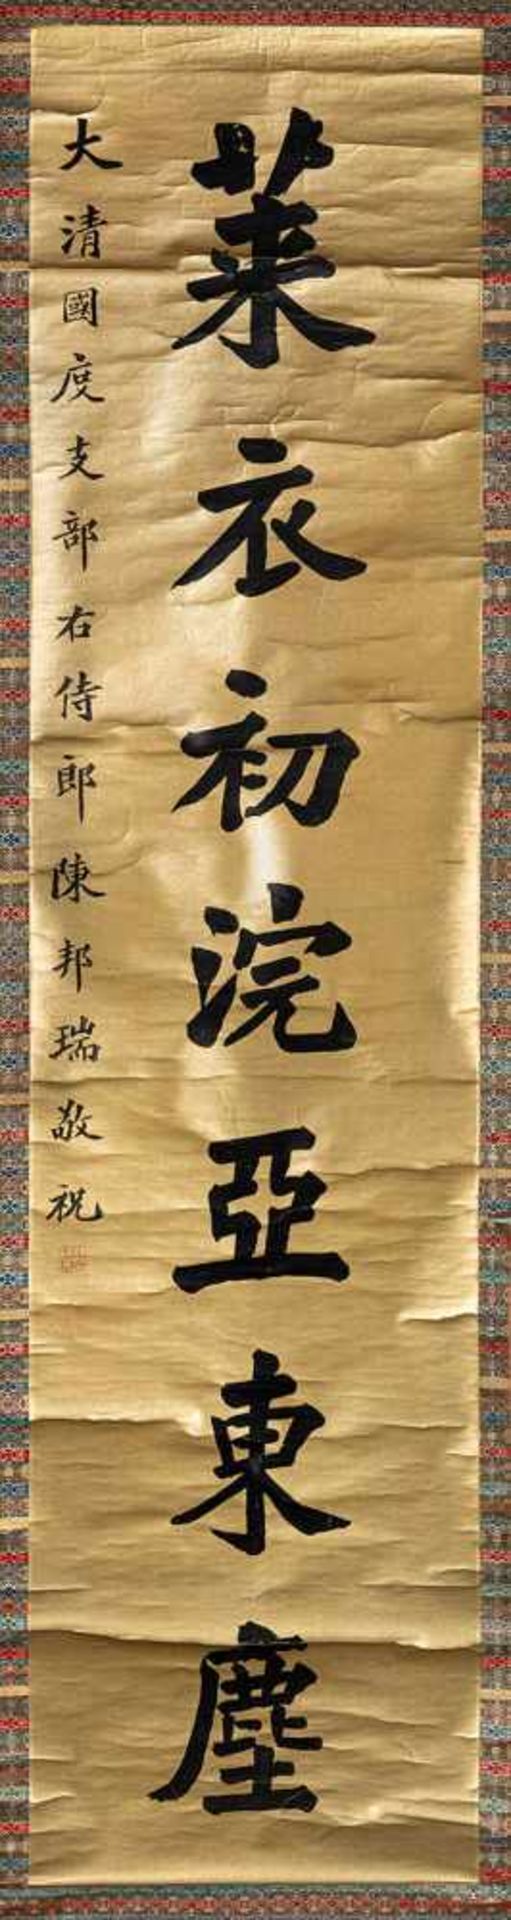 萊衣初浣亞東塵
大清國度支部右侍郎陳邦瑞敬祝